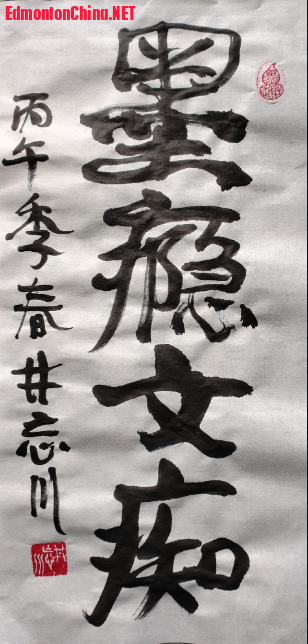 EdmontonChina.NET
墨瘾文痴
丙午季春井忘川